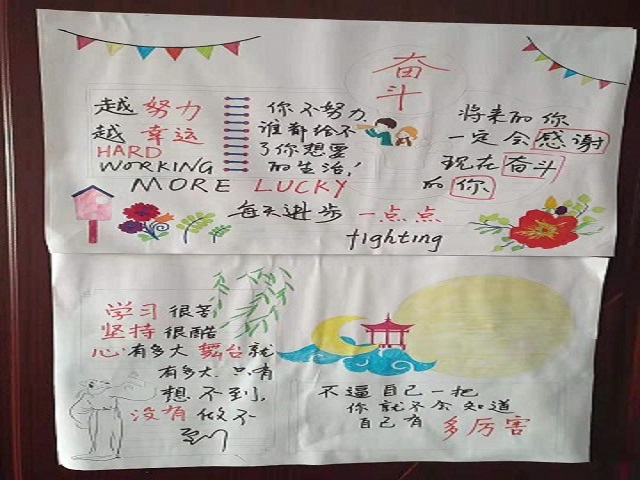 奋
斗
越努力
越幸运
HARD
WORKING
MORE LUCKY
你不努力
谁都给不
了你想要
的生活!
将来的你
一定会感谢
现在奋斗
的你
每天进步一点点
fighting
学习很苦
坚持很酷
心有多大舞台就
有多大只有
想不到,
没有做不
到
不逼自己一把
你就不会知道
自己有多厉害